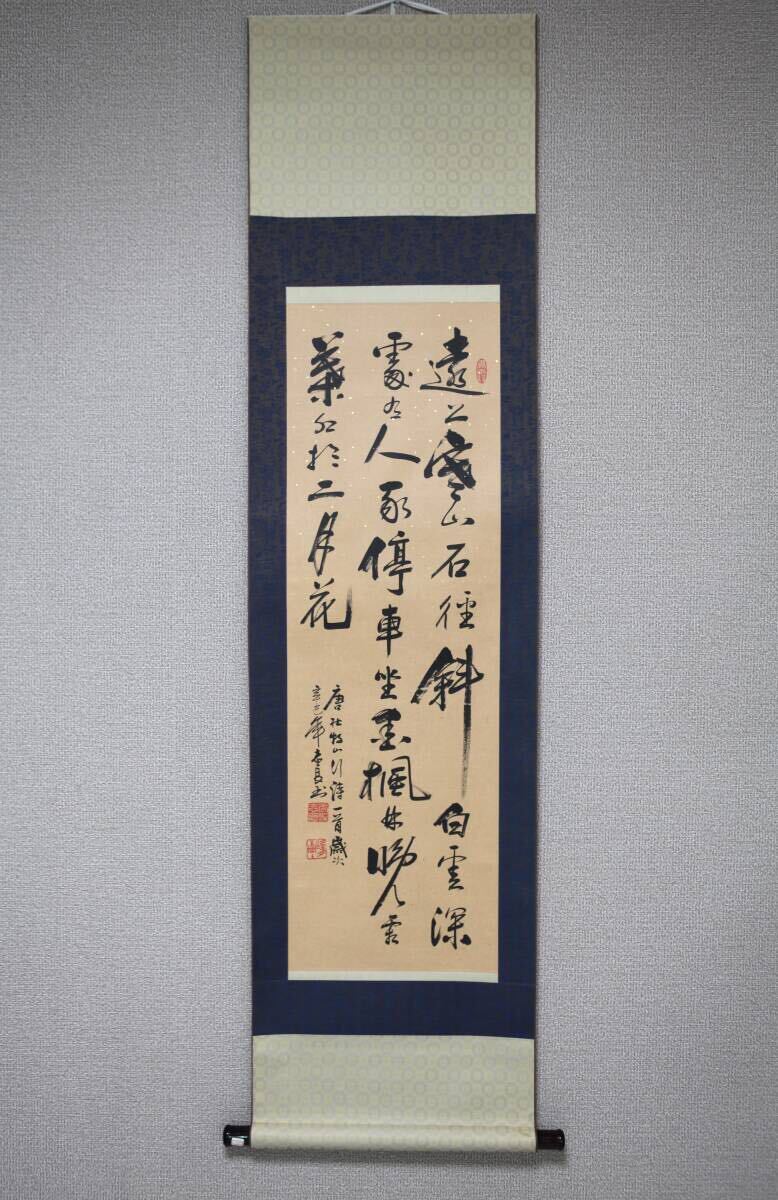 遠上寒山石徑斜白雲深
處有人家停車坐愛楓林晚霜
葉紅於二月花
唐杜牧山行詩一首歲次
辛巳年春書